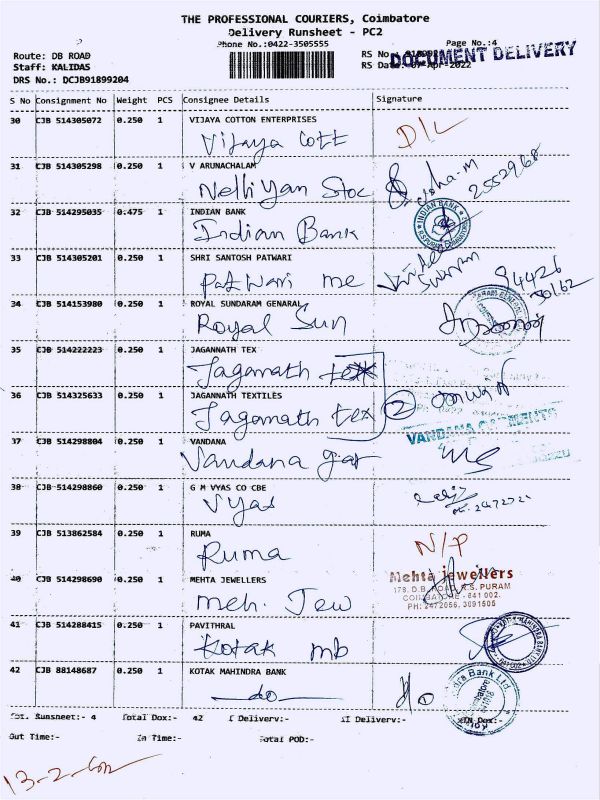 THE PROFESSIONAL COURIERS, Coimbatore
Delivery Runsheet - PC2
Phone No.:0422-3505555
Page No.:4
Route: DB ROAD
RS No.:
DOCUMENT DELIVERY
Staff: KALIDAS
RS Date: 07-Apr-2022
DRS No.: DCJB91899204
S No Consignment No Weight PCS Consignee Details Signature
30 CJB 514305072 0.250 1 VIJAYA COTTON ENTERPRISES
Vijaya Cott D/L
31 CJB 514305298 0.250 1 V ARUNACHALAM
Nelliyan Stoc
32 CJB 514295035 0.475 1 INDIAN BANK
Indian Bank
INDIAN BANK
33 CJB 514305201 0.250 1 SHRI SANTOSH PATWARI
Patwari me
34 CJB 514153980 0.250 1 ROYAL SUNDARAM GENARAL
Royal Sun
35 CJB 514222223 0.250 1 JAGANNATH TEX
Jagannath tex
36 CJB 514325633 0.250 1 JAGANNATH TEXTILES
Jagannath tex 2
37 CJB 514298804 0.250 1 VANDANA
VANDANA GARMENTS
Vandana gar
38 CJB 514298860 0.250 1 G M VYAS CO CBE
Vyas
39 CJB 513862584 0.250 1 RUMA
Ruma N/P
40 CJB 514298690 0.250 1 MEHTA JEWELLERS
Meh. Jew
Mehta jewellers
178, D.B. ROAD, R.S. PURAM
COIMBATORE - 641 002.
PH: 2472056, 3091505
41 CJB 514288415 0.250 1 PAVITHRAL
Kotak mb
42 CJB 88148687 0.250 1 KOTAK MAHINDRA BANK
do
Tot. Runsheet:- 4 Total Dox:- 42 I Delivery:- II Delivery:- NIN Dox:-
Out Time:- In Time:- Total POD:-